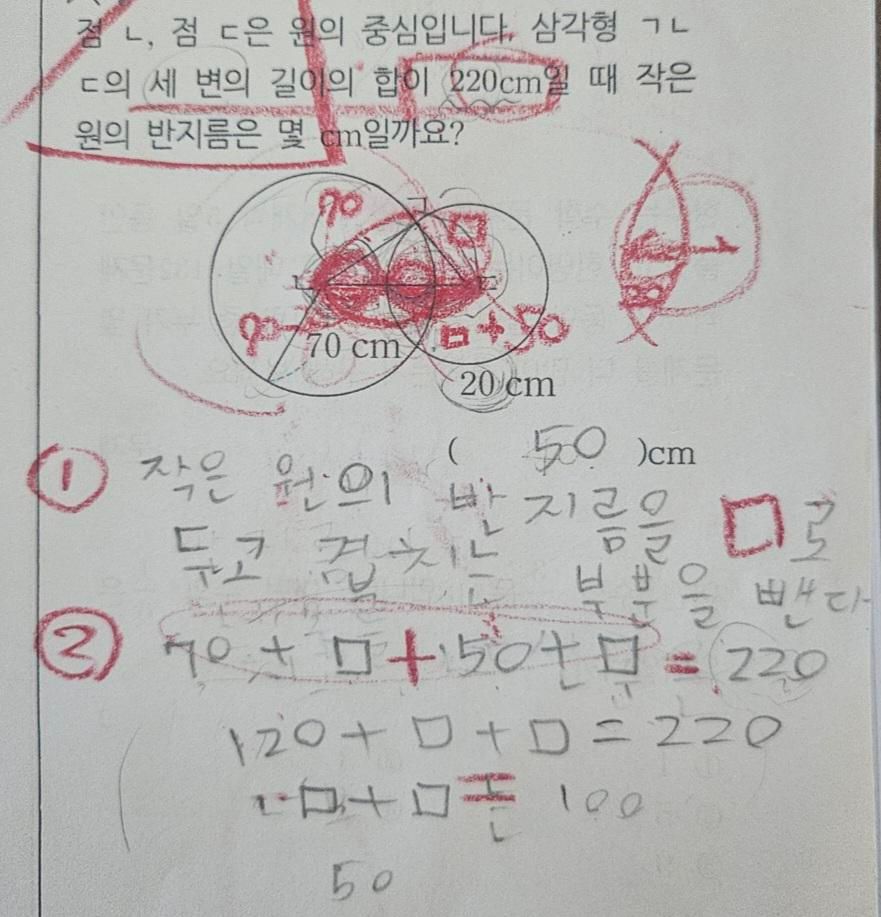 점 ㄴ, 점 ㄷ은 원의 중심입니다. 삼각형 ㄱㄴ
ㄷ의 세 변의 길이의 합이 220cm일 때 작은
원의 반지름은 몇 cm일까요?
70
ㄱ
□
ㄴ
ㄷ
70
70 cm
□+50
20 cm
( 50 )cm
① 작은 원의 반지름을 □로
두고 겹치는 부분을 뺀다
② 70 + □ + 50 + □ = 220
120 + □ + □ = 220
□ + □ = 100
50